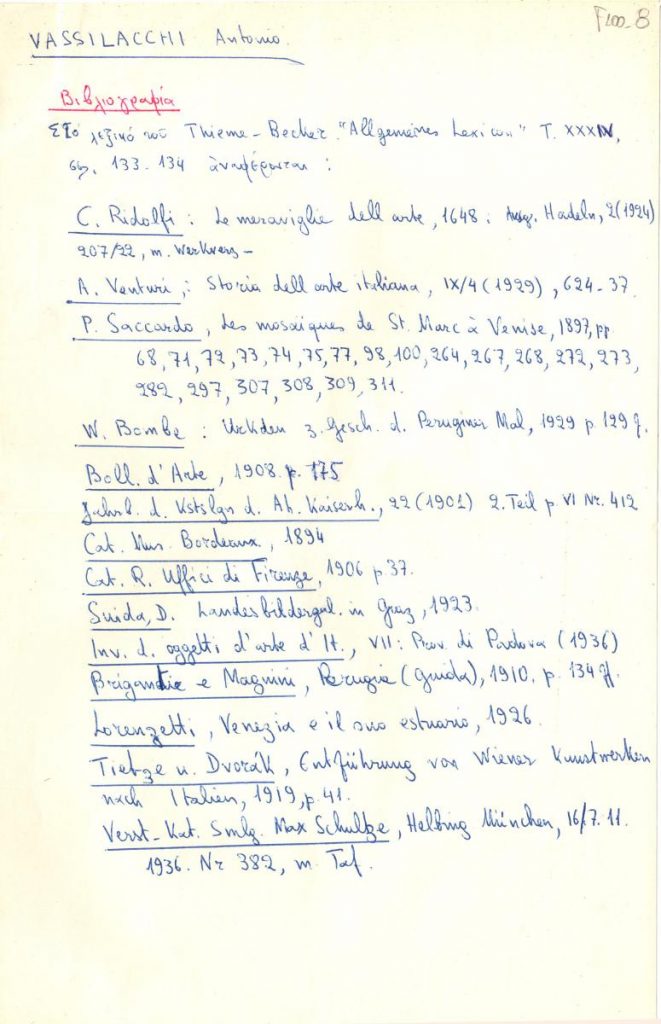 F100_8
VASSILACCHI Antonio.
Βιβλιογραφία
Στό λεξικό τοῦ Thieme-Becker "Allgemeines Lexicon" T. XXXIV,
σσ. 133-134 ἀναφέρωνται :
C. Ridolfi : Le meraviglie dell arte, 1648 : Ausg. Hadeln, 2 (1924)
207/22, m. Werkverz-
A. Venturi, : Storia dell arte italiana, IX/4 (1929), 624-37.
P. Saccardo, Les mosaïques de St. Marc à Venise, 1897, pp.
68, 71, 72, 73, 74, 75, 77, 98, 100, 264, 267, 268, 272, 273,
282, 297, 307, 308, 309, 311.
W. Bombe : Urkden z. Gesch. d. Peruginer Mal, 1929 p. 129 f.
Boll. d'Arte, 1908. p. 175
Jahrb. d. Kstslgn d. Ah. Kaiserh., 22 (1901) 2. Teil p. VI Nr. 412
Cat. Mus. Bordeaux, 1894
Cat. R. Uffici di Firenze, 1906 p. 37.
Suida, D. Landesbildergal. in Graz, 1923.
Inv. d. oggetti d'arte d'It., VII : Prov. di Padova (1936)
e Magnini, Perugia (Guida), 1910, p. 134 f.
Lorenzetti, Venezia e il suo estuario, 1926.
Tietze u. Dvorák, Entführung von Wiener Kunstwerken
nach Italien, 1919, p. 41.
Verst-Kat. Smlg. Max Schultze, Helbing München, 16/7. 11.
1936. Nr 382, m. Taf.